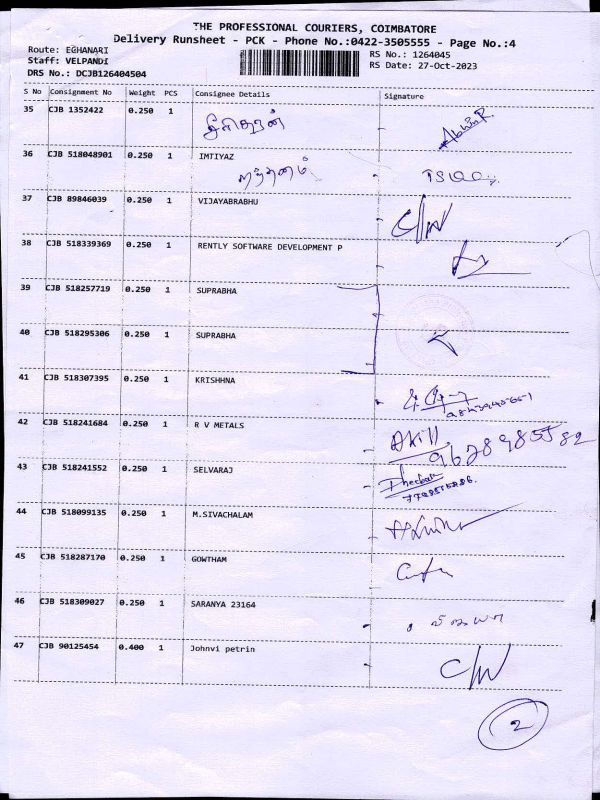 THE PROFESSIONAL COURIERS, COIMBATORE
Delivery Runsheet - PCK - Phone No.:0422-3505555 - Page No.:4
Route: EGHANARI RS No.: 1264045
Staff: VELPANDI RS Date: 27-Oct-2023
DRS No.: DCJB126404504
S No Consignment No Weight PCS Consignee Details Signature
35 CJB 1352422 0.250 1
36 CJB 518048901 0.250 1 IMTIYAZ
37 CJB 89846039 0.250 1 VIJAYABRABHU
38 CJB 518339369 0.250 1 RENTLY SOFTWARE DEVELOPMENT P
39 CJB 518257719 0.250 1 SUPRABHA
40 CJB 518295306 0.250 1 SUPRABHA
41 CJB 518307395 0.250 1 KRISHHNA
42 CJB 518241684 0.250 1 R V METALS
43 CJB 518241552 0.250 1 SELVARAJ
44 CJB 518099135 0.250 1 M.SIVACHALAM
45 CJB 518287170 0.250 1 GOWTHAM
46 CJB 518309027 0.250 1 SARANYA 23164
47 CJB 90125454 0.400 1 Johnvi petrin
2